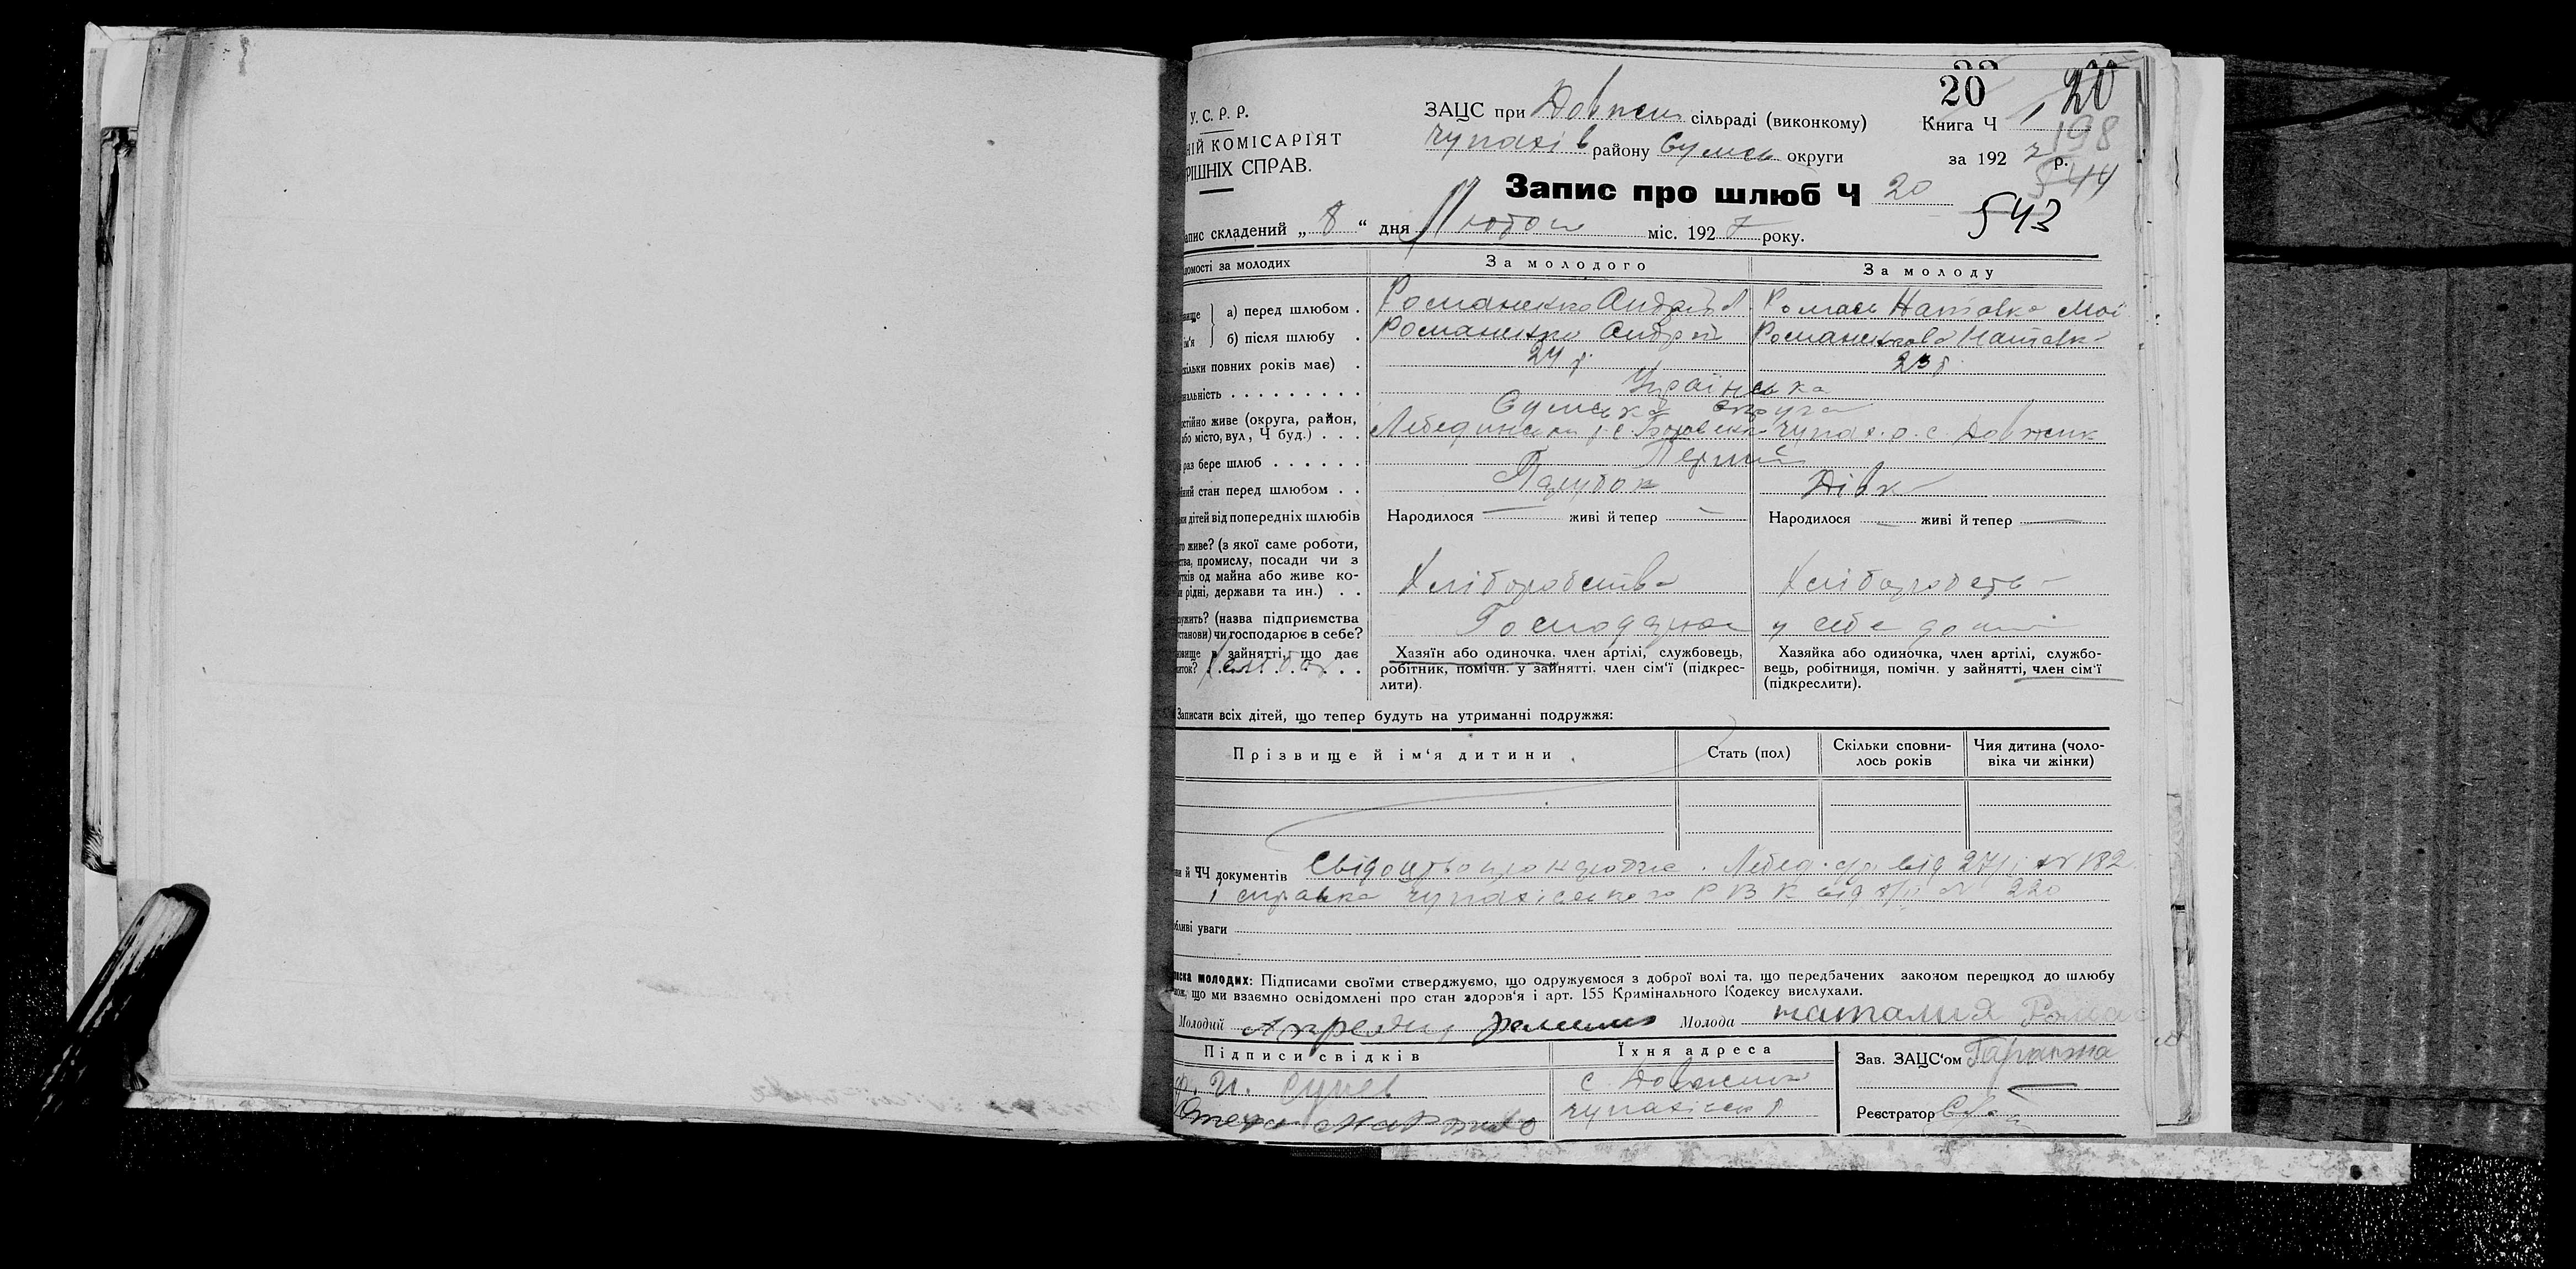 20 20
У. С. Р. Р.
ЗАЦС при Довжик сільраді (виконкому) Книга Ч 1
198
НІЙ КОМІСАРІЯТ
Чупахів району Сумськ округи за 192 7 р.
РІШНІХ СПРАВ.
544
Запис про шлюб Ч 20
543
апис складений „ 8 “ дня Лютого міс. 192 7 року.
домості за молодих За молодого За молоду
вище а) перед шлюбом . Романенко Андрій Ромась Наталка
ім'я б) після шлюбу . Романенко Андрій Романенкова Наталка
кільки повних років має) . 24 р. 23 р.
нальність . . . . . . . . . Українська
Сумська округа
остійно живе (округа, район,
або місто, вул, Ч буд.) . . . Лебединськ р. с. Чупах. р. с. Довжик
раз бере шлюб . . . . . . Перший
йний стан перед шлюбом . . Парубок Дівка
ки дітей від попередніх шлюбів Народилося — живі й тепер — Народилося — живі й тепер —
го живе? (з якої саме роботи,
ства, промислу, посади чи з
утків од майна або живе ко-
и рідні, держави та ин.) . . Хліборобства Хліборобств
служить? (назва підприємства
установи) чи господарює в себе? Господарює у себе дома
овище в зайнятті, що дає
иток? Хлібор. . . .
Хазяїн або одиночка, член артілі, службовець,
робітник, помічн. у зайнятті. член сім'ї (підкрес-
лити).
Хазяйка або одиночка, член артілі, службо-
вець, робітниця, помічн. у зайнятті, член сім'ї
(підкреслити).
Записати всіх дітей, що тепер будуть на утриманні подружжя:
Прізвище й ім'я дитини Стать (пол) Скільки сповни-
лось років Чия дитина (чоло-
віка чи жінки)
ви й ЧЧ документів Свідоцтво про народже. Лебед. від 27/ № 182
і справка Чупахівського Р В К від № 220
бливі уваги
писка молодих: Підписами своїми стверджуємо, що одружуємося з доброї волі та, що передбачених законом перешкод до шлюбу
що ми взаємно освідомлені про стан здоров'я і арт. 155 Кримінального Кодексу вислухали.
Молодий Молода наталия Ромас
Підписи свідків Їхня адреса Зав. ЗАЦС'ом
И. с. Довжик
Чупахівськ р Реєстратор